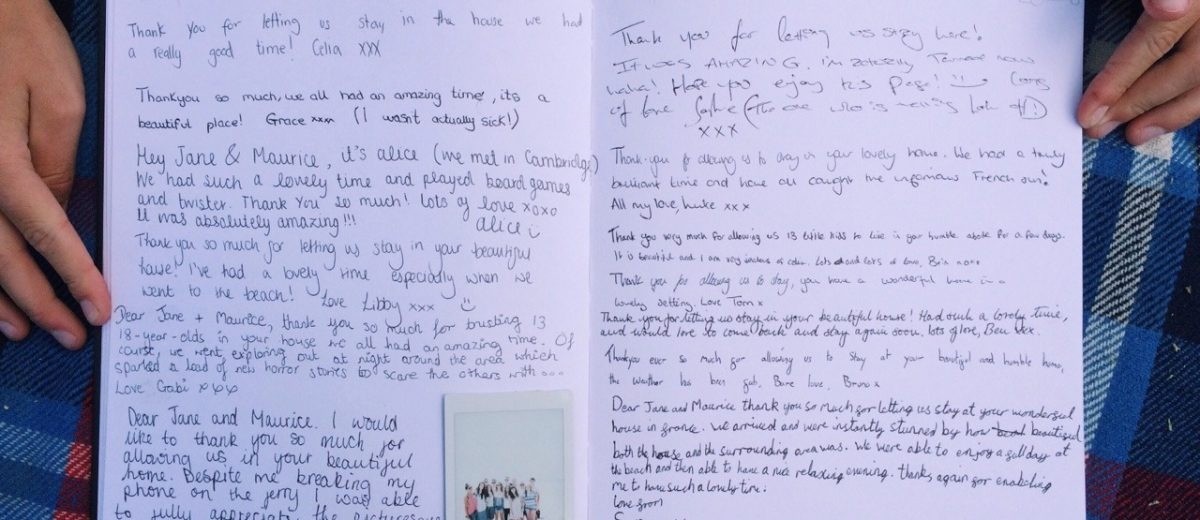 Thank you for letting us stay in the house we had
a really good time! Celia xxx
Thankyou so much, we all had an amazing time, its a
beautiful place! Grace xxx (I wasn't actually sick!)
Hey Jane & Maurice, it's alice (we met in Cambridge)
We had such a lovely time and played board games
and twister. Thank You so much! Lots of love xoxo
It was absolutely amazing!!! alice
Thank you so much for letting us stay in your beautiful
house! I've had a lovely time especially when we
went to the beach! Love Libby xxx
Dear Jane + Maurice, thank you so much for trusting 13
18-year-olds in your house we all had an amazing time. Of
course, we went exploring out at night around the area which
sparked a load of new horror stories to scare the others with...
Love Gabi xxx
Dear Jane and Maurice. I would
like to thank you so much for
allowing us in your beautiful
home. Despite me breaking my
phone on the ferry I was able
to fully appreciate the picturesque
Thank you for letting us stay here!
It was AMAZING. I'm totally Tanned now
haha! Hope you enjoy this page! :) Lots
of love Sophie (The one who is
xxx
Thank-you for allowing us to stay in your lovely home. We had a truly
brilliant time and have all caught the infamous French sun!
All my love, Luke xxx
Thank you very much for allowing us 13 little kids to live in your humble abode for a few days.
It is beautiful and I am very of Lots and lots of love,
Thank you for allowing us to stay, you have a wonderful home in a
lovely setting. Love Tom x
Thank you for letting us stay in your beautiful house! Had such a lovely time,
and would love to come back and stay again soon. lots of love, Ben xxx.
Thankyou ever so much for allowing us to stay at your beautiful and humble home,
the weather has been fab. Bare love, Bruno x
Dear Jane and Maurice thank you so much for letting us stay at your wonderful
house in france. We arrived and were instantly stunned by how beautiful
both the house and the surrounding area was. We were able to enjoy a full day at
the beach and then able to have a nice relaxing evening. thanks again for enabling
me to have such a lovely time.
love from